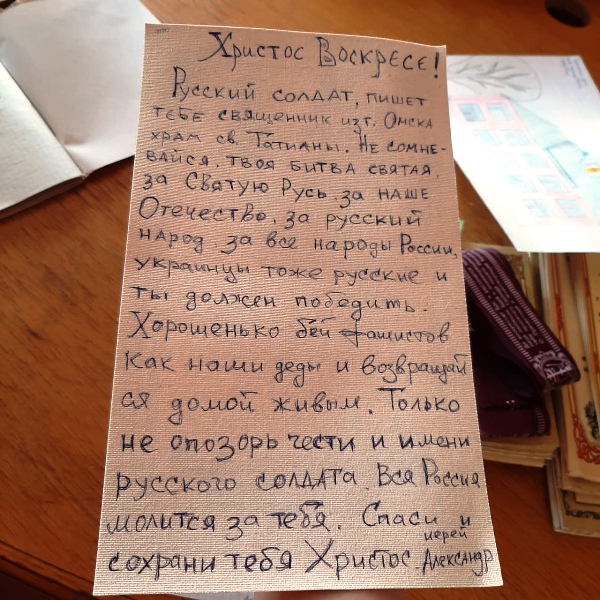 Христос Воскресе!
Русский солдат, пишет
тебе священник из г. Омска
храм св. Татианы. Не сомне-
вайся. твоя битва святая.
за Святую Русь. за наше
Отечество. за русский
народ. за все народы России,
украинцы тоже русские и
ты должен победить.
Хорошенько бей фашистов
как наши деды и возвращай
ся домой живым. Только
не опозорь чести и имени
русского солдата. Вся Россия
молится за тебя. Спаси и
сохрани тебя Христос. иерей Александр